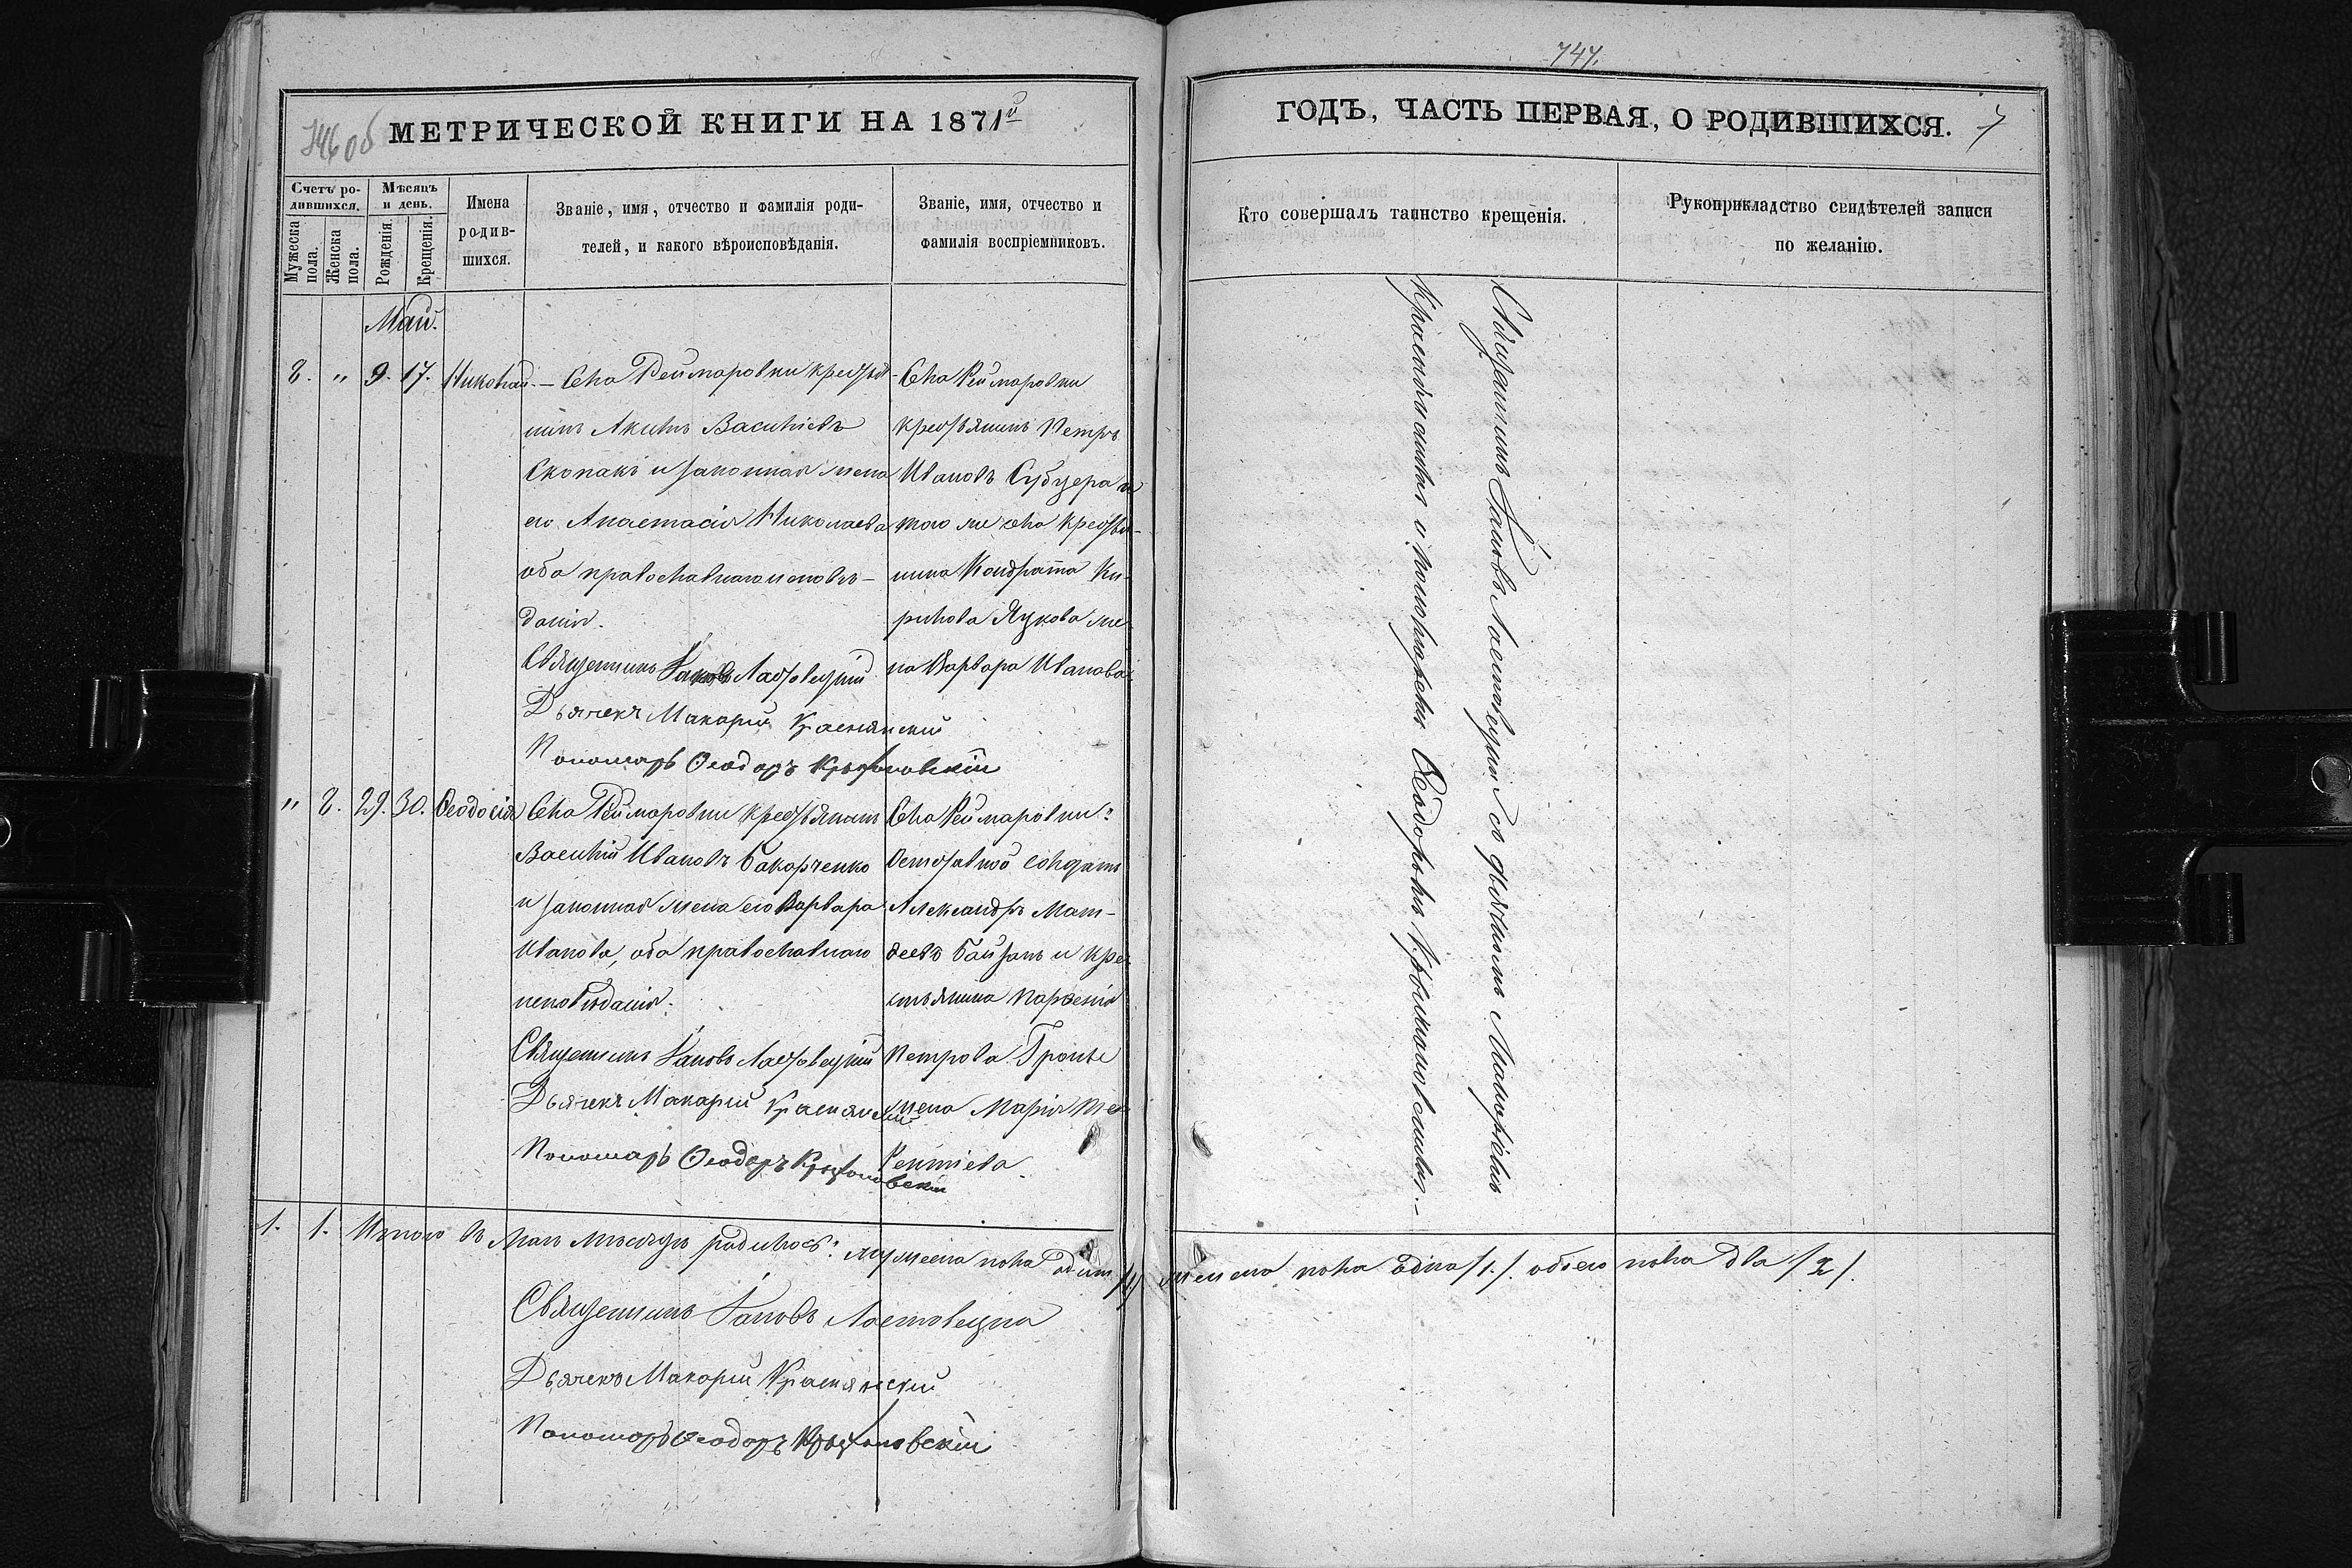 746 об
МЕТРИЧЕСКОЙ КНИГИ НА 1871й
Счетъ ро-
дившихся.
Мужеска
пола.
Женска
пола.
Мѣсяцъ
и день.
Рожденія.
Крещенія.
Имена
родив-
шихся.
Званіе, имя, отчество и фамилія роди-
телей, и какого вѣроисповѣданія.
Званіе, имя, отчество и
фамилія воспріемниковъ.
Май.
8. " 9. 17. Николай. – Села Рейтаровки крестья-
нинъ Акимъ Васильевъ
Скопакъ и законная жена
его Анастасія Николаева
оба православнаго исповѣ-
данія.
Священникъ Іаковъ Ластовецкій
Дьячекъ Макарій Краснянскій
Пономарь Ѳеодоръ
Села Рейтаровки
крестьянинъ Петръ
Ивановъ и
того же села крестья-
нина Кондрата Ки-
рилова Яцкова же-
на Варвара Иванова
" 8. 29. 30. Ѳеодосія
Села Рейтаровки крестьянинъ
Василій Ивановъ Бакарченко
и законная жена его Варвара
Иванова, оба православнаго
исповѣданія.
Священникъ Іаковъ Ластовецкій
Дьячекъ Макарій Краснянскій
Пономарь Ѳеодоръ
Села Рейтаровки
отставной солдатъ
Александръ Мат-
ѳеевъ и кре-
стьянина Парѳенія
Петрова
жена Марія Те-
рентіева.
1. 1. Итого въ Маѣ мѣсяцѣ родилось: мужеска пола одинъ /1/
Священникъ Іаковъ Ластовецкій
Дьячекъ Макарій Краснянскій
Пономарь Ѳеодоръ
747.
ГОДЪ, ЧАСТЬ ПЕРВАЯ, О РОДИВШИХСЯ. 7
Кто совершалъ таинство крещенія.
Рукоприкладство свидѣтелей записи
по желанію.
Священникъ Іаковъ Ластовецкій съ дьячкомъ Макаріемъ
Краснянскимъ и пономаремъ Ѳеодоромъ
женска пола одна /1/. обоего пола два /2/.